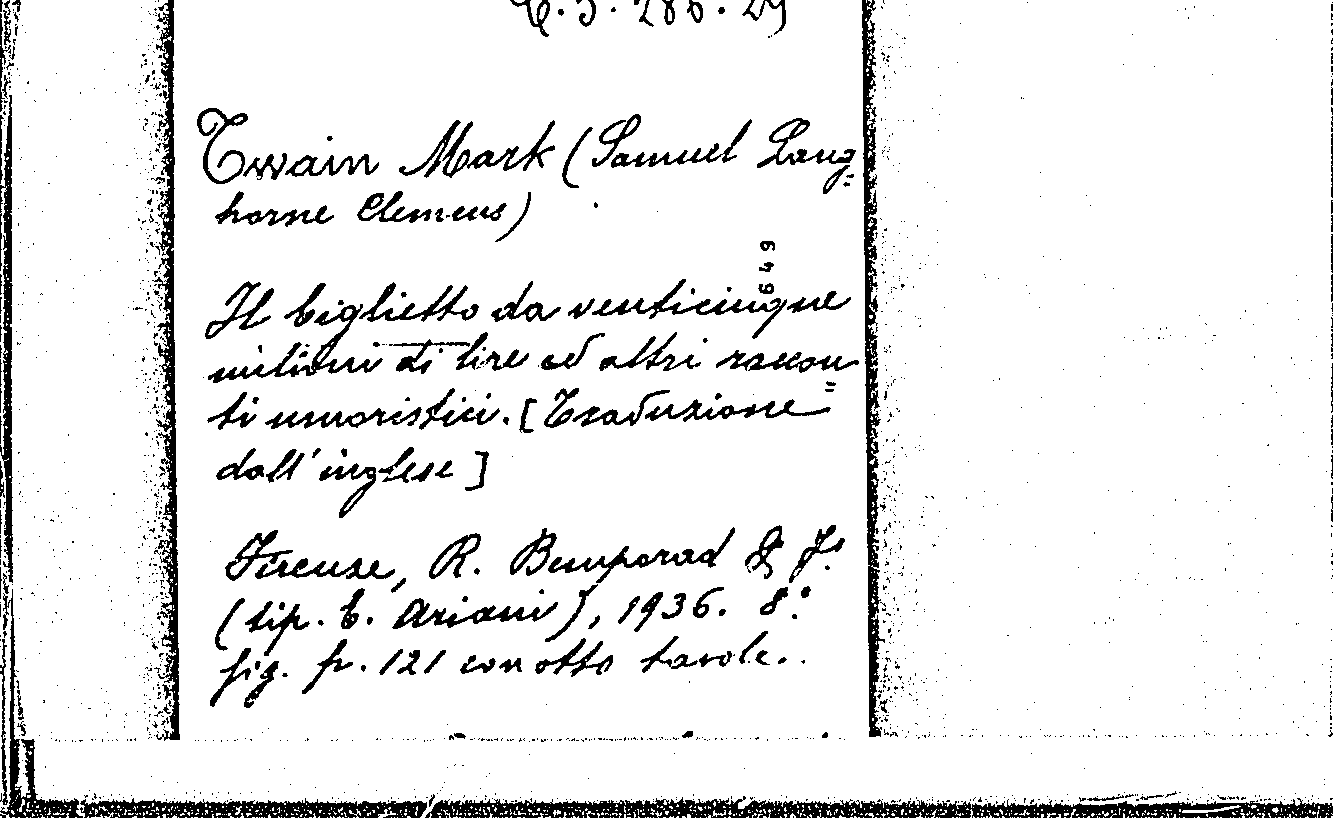 Twain Mark (Samuel Lang=
horne Clemens)
649
Il biglietto da venticinque
milioni di lire ed altri raccon=
ti umoristici. [Traduzione
dall'inglese]
Firenze, R. Bemporad & F.°
(tip. E. Ariani), 1936. 8.°
fig. p. 121 con otto tavole.